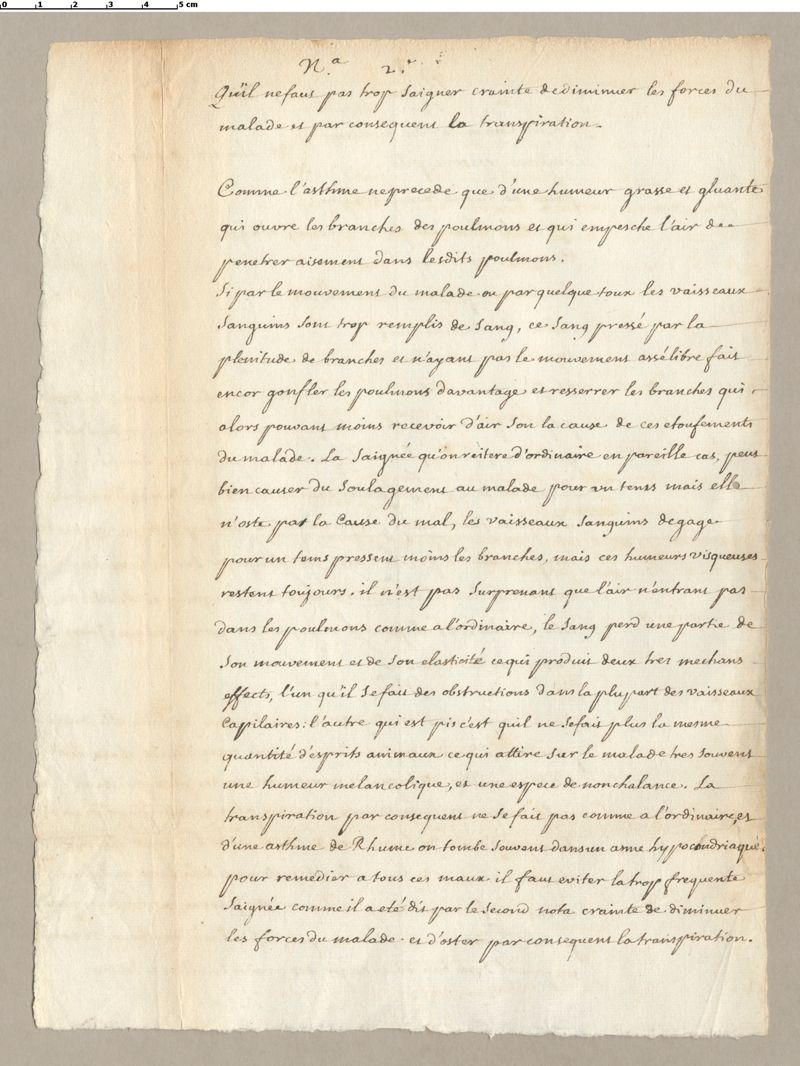 0 1 2 3 4 5 cm
N.a 2.r
Qu'il nefaut pas trop saigner crainte dediminuer les forces du
malade et par consequent la transpiration.
Comme l'asthme neprecede que d'une humeur grasse et gluante
qui ouvre les branches des poulmons et qui empesche l'air de
penetrer aisement dans lesdits poulmons.
Si par le mouvement du malade ou par quelque toux les vaisseaux
sanguins sont trop remplis de sang, ce sang pressé par la
plenitude de branches et n'ayant pas le mouvement assé libre fait
encor gonfler les poulmons davantage et resserrer les branches qui
alors pouvant moins recevoir d'air son la cause de ces etoufements
du malade. La saignée qu'on réitere d'ordinaire en pareille cas, peut
bien causer du soulagement au malade pour un temss mais elle
n'oste pas la Cause du mal, les vaisseaux sanguins degage
pour un tems pressent moins les branches, mais ces humeurs visqueuses
restent toujours. il n'est pas surprenant que l'air n'entrant pas
dans les poulmons comme a l'ordinaire, le sang perd une partie de
son mouvement et de son elasticité ce qui produit deux tres mechans
effects, l'un qu'il se fait des obstructions dans la plupart des vaisseaux
Capilaires: l'autre qui est pis c'est quil ne se fait plus la mesme
quantité d'esprits animaux ce qui attire sur le malade tres souvent
une humeur melancolique, et une espece de nonchalance. La
transpiration par consequent ne se fait pas comme a l'ordinaire, et
d'une asthme de Rhume on tombe souvent dans un asme hypocondriaque.
pour remedier a tous ces maux il faut eviter la trop frequente
saignée comme il a eté dit par le second nota crainte de diminuer
les forces du malade et d'oster par consequent la transpiration.